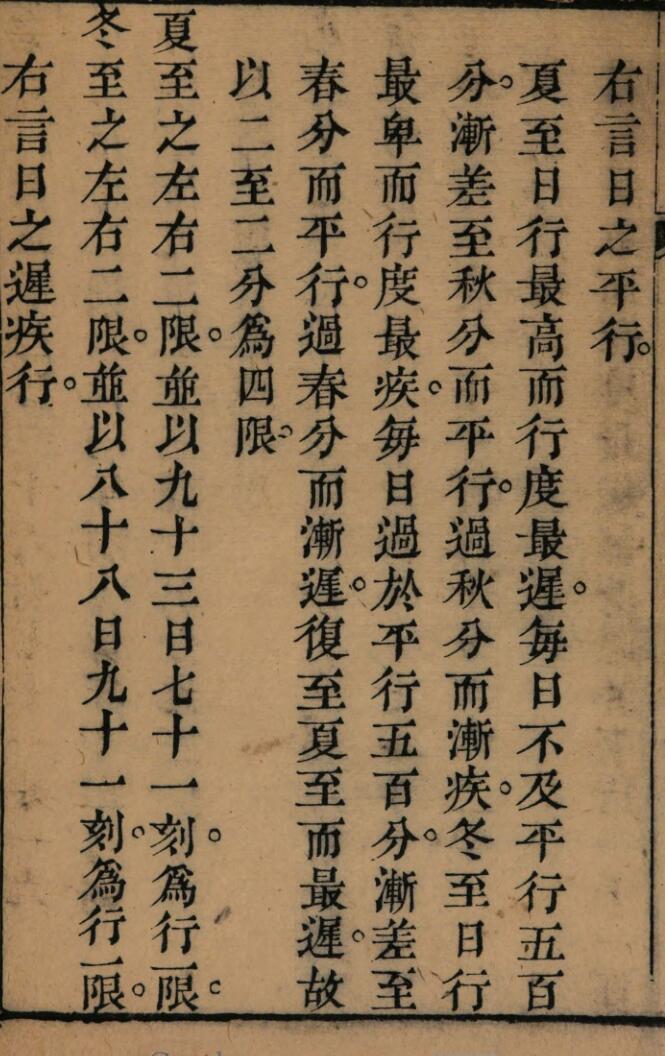 右言日之平行。
夏至日行最高而行度最遲。每日不及平行五百
分。漸差至秋分而平行。過秋分而漸疾。冬至日行
最卑而行度最疾。每日過於平行五百分。漸差至
春分而平行。過春分而漸遲。復至夏至而最遲。故
以二至二分為四限。
夏至之左右二限。並以九十三日七十一刻。為行一限。
冬至之左右二限。並以八十八日九十一刻。為行一限。
右言日之遲疾行。